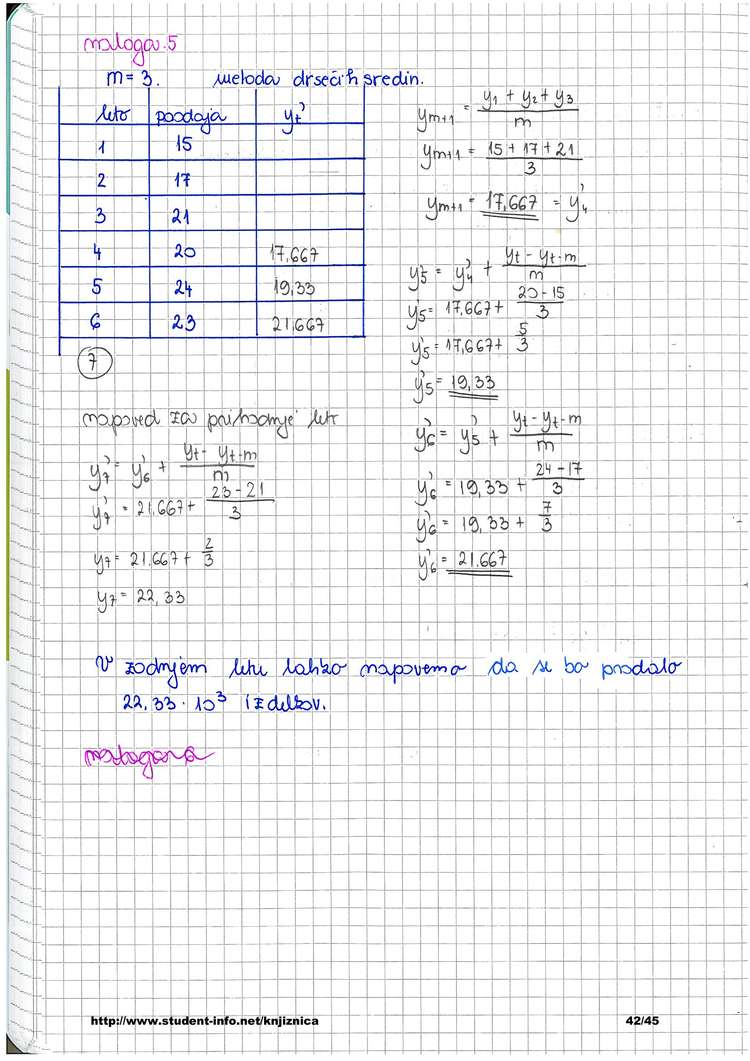 naloga 5
m = 3. metoda drsečih sredin.
leto prodaja y't
1 15
2 17
3 21
4 20 17,667
5 24 19,33
6 23 21,667
7
y m+1 = (y1 + y2 + y3) / m
y m+1 = (15 + 17 + 21) / 3
y m+1 = 17,667 = y'4
y'5 = y'4 + (yt - yt-m) / m
y'5 = 17,667 + (20 - 15) / 3
y'5 = 17,667 + 5/3
y'5 = 19,33
y'6 = y'5 + (yt - yt-m) / m
y'6 = 19,33 + (24 - 17) / 3
y'6 = 19,33 + 7/3
y'6 = 21.667
napoved za prihodnje leto
y'7 = y'6 + (yt - yt-m) / m
y'7 = 21.667 + (23 - 21) / 3
y7 = 21.667 + 2/3
y7 = 22,33
V zadnjem letu lahko napovemo da se bo prodalo
22,33 · 10³ izdelkov.
http://www.student-info.net/knjiznica 42/45